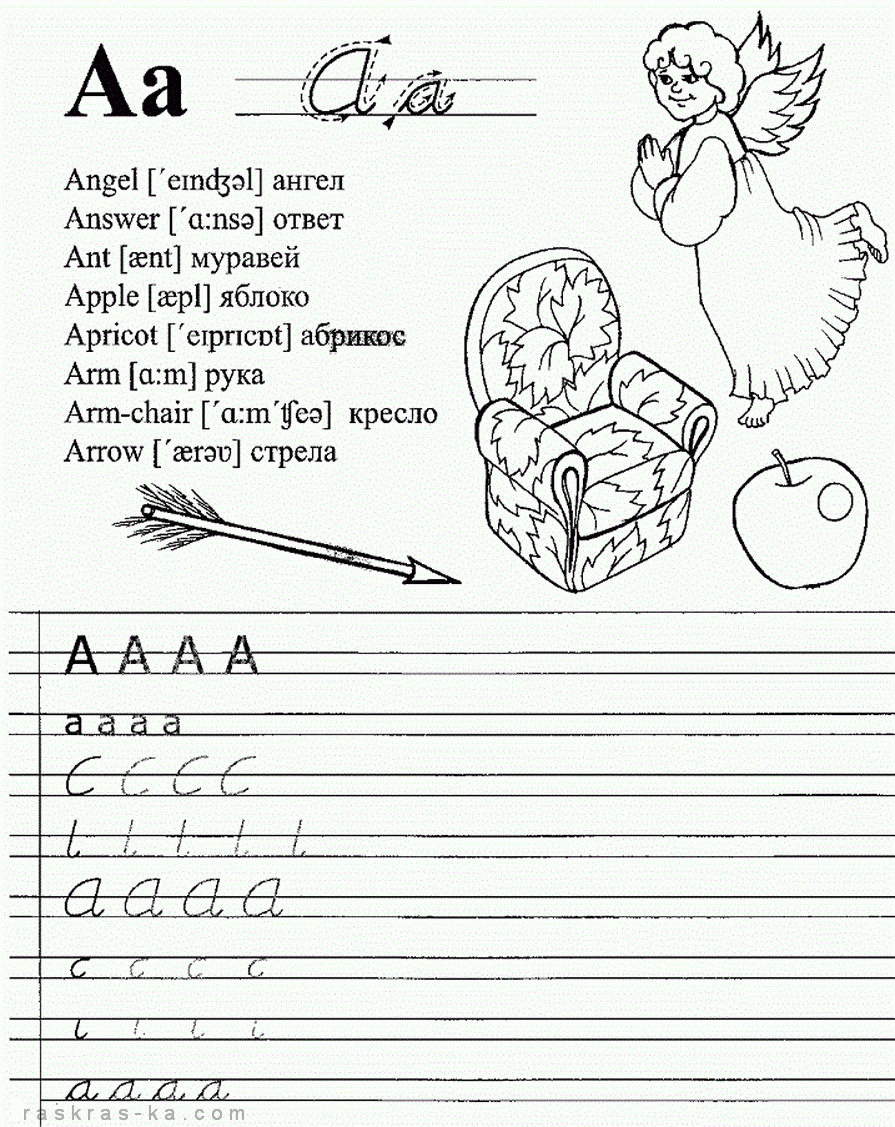 Aa Aa
Angel [´eɪnʤəl] ангел
Answer [´ɑ:nsə] ответ
Ant [ænt] муравей
Apple [æpl] яблоко
Apricot [´eɪprɪɒt] абрикос
Arm [ɑ:m] рука
Arm-chair [´ɑ:m´ʧeə] кресло
Arrow [´ærəʊ] стрела
A A A A
a a a a
C C C C
l l l l l
A A A A
c c c c
ι ι ι ι
a a a a
raskras-ka.com